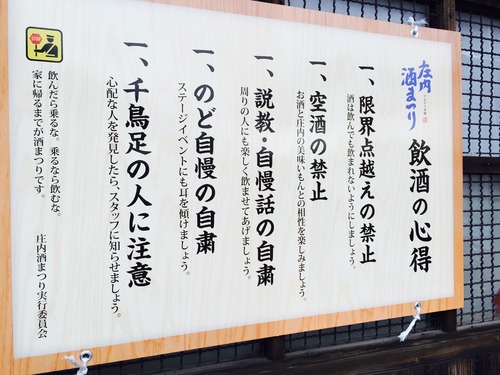 庄内
酒まつり
飲酒の心得
一、限界点越えの禁止
酒は飲んでも飲まれないようにしましょう。
一、空酒の禁止
お酒と庄内の美味いもんとの相性を楽しみましょう。
一、説教・自慢話の自粛
周りの人にも楽しく飲ませてあげましょう。
一、のど自慢の自粛
ステージイベントにも耳を傾けましょう。
一、千鳥足の人に注意
心配な人を発見したら、スタッフに知らせましょう。
飲んだら乗るな。乗るなら飲むな。
家に帰るまでが酒まつりです。
庄内酒まつり実行委員会